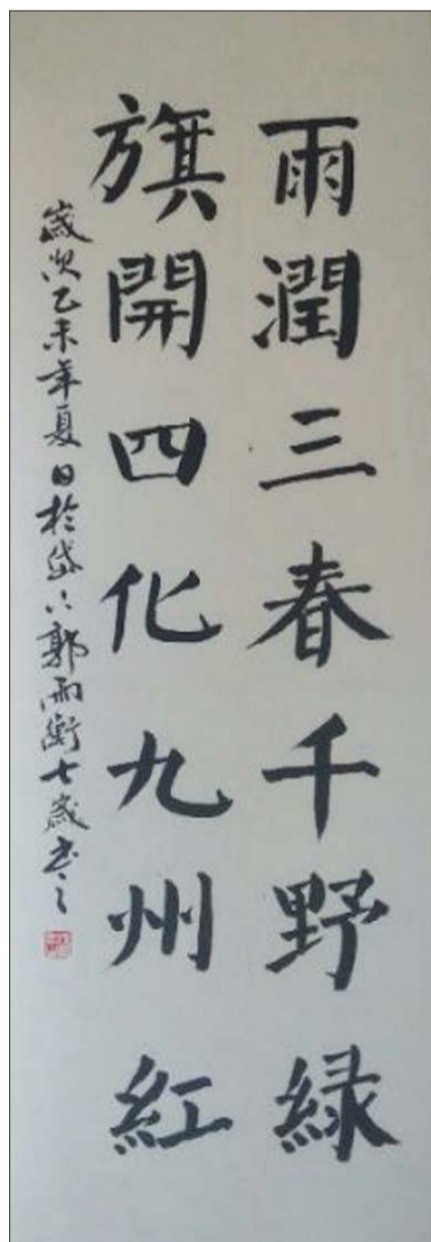 雨潤三春千野緑
旗開四化九州紅
歲次乙未年夏日於岱下郭雨衡七歲書之